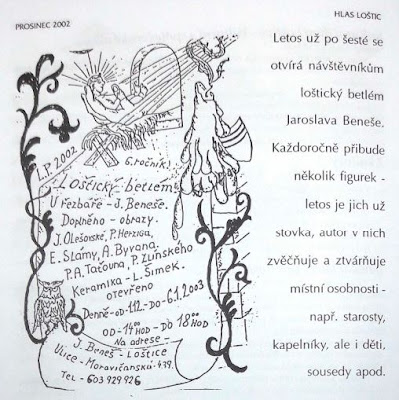 PROSINEC 2002
HLAS LOŠTIC
L.P. 2002
6. ročník!
Loštický betlém
U řezbáře - J. Beneše.
Doplněno - obrazy.
J. Olešovské, P. Herziga,
E. Slámy, A. Byvana,
P. A. Taťouna, P. Zlínského
Keramika - L. Šimek.
OTEVŘENO
Denně - OD - 1.12. - DO - 6.1.2003
OD - 14 HOD - DO 18 HOD
Na adrese -
J. Beneš - Loštice
Ulice - Moravičanská - 479.
Tel - 603 929 926
Letos už po šesté se
otvírá návštěvníkům
loštický betlém
Jaroslava Beneše.
Každoročně přibude
několik figurek -
letos je jich už
stovka, autor v nich
zvěčňuje a ztvárňuje
místní osobnosti -
např. starosty,
kapelníky, ale i děti,
sousedy apod.